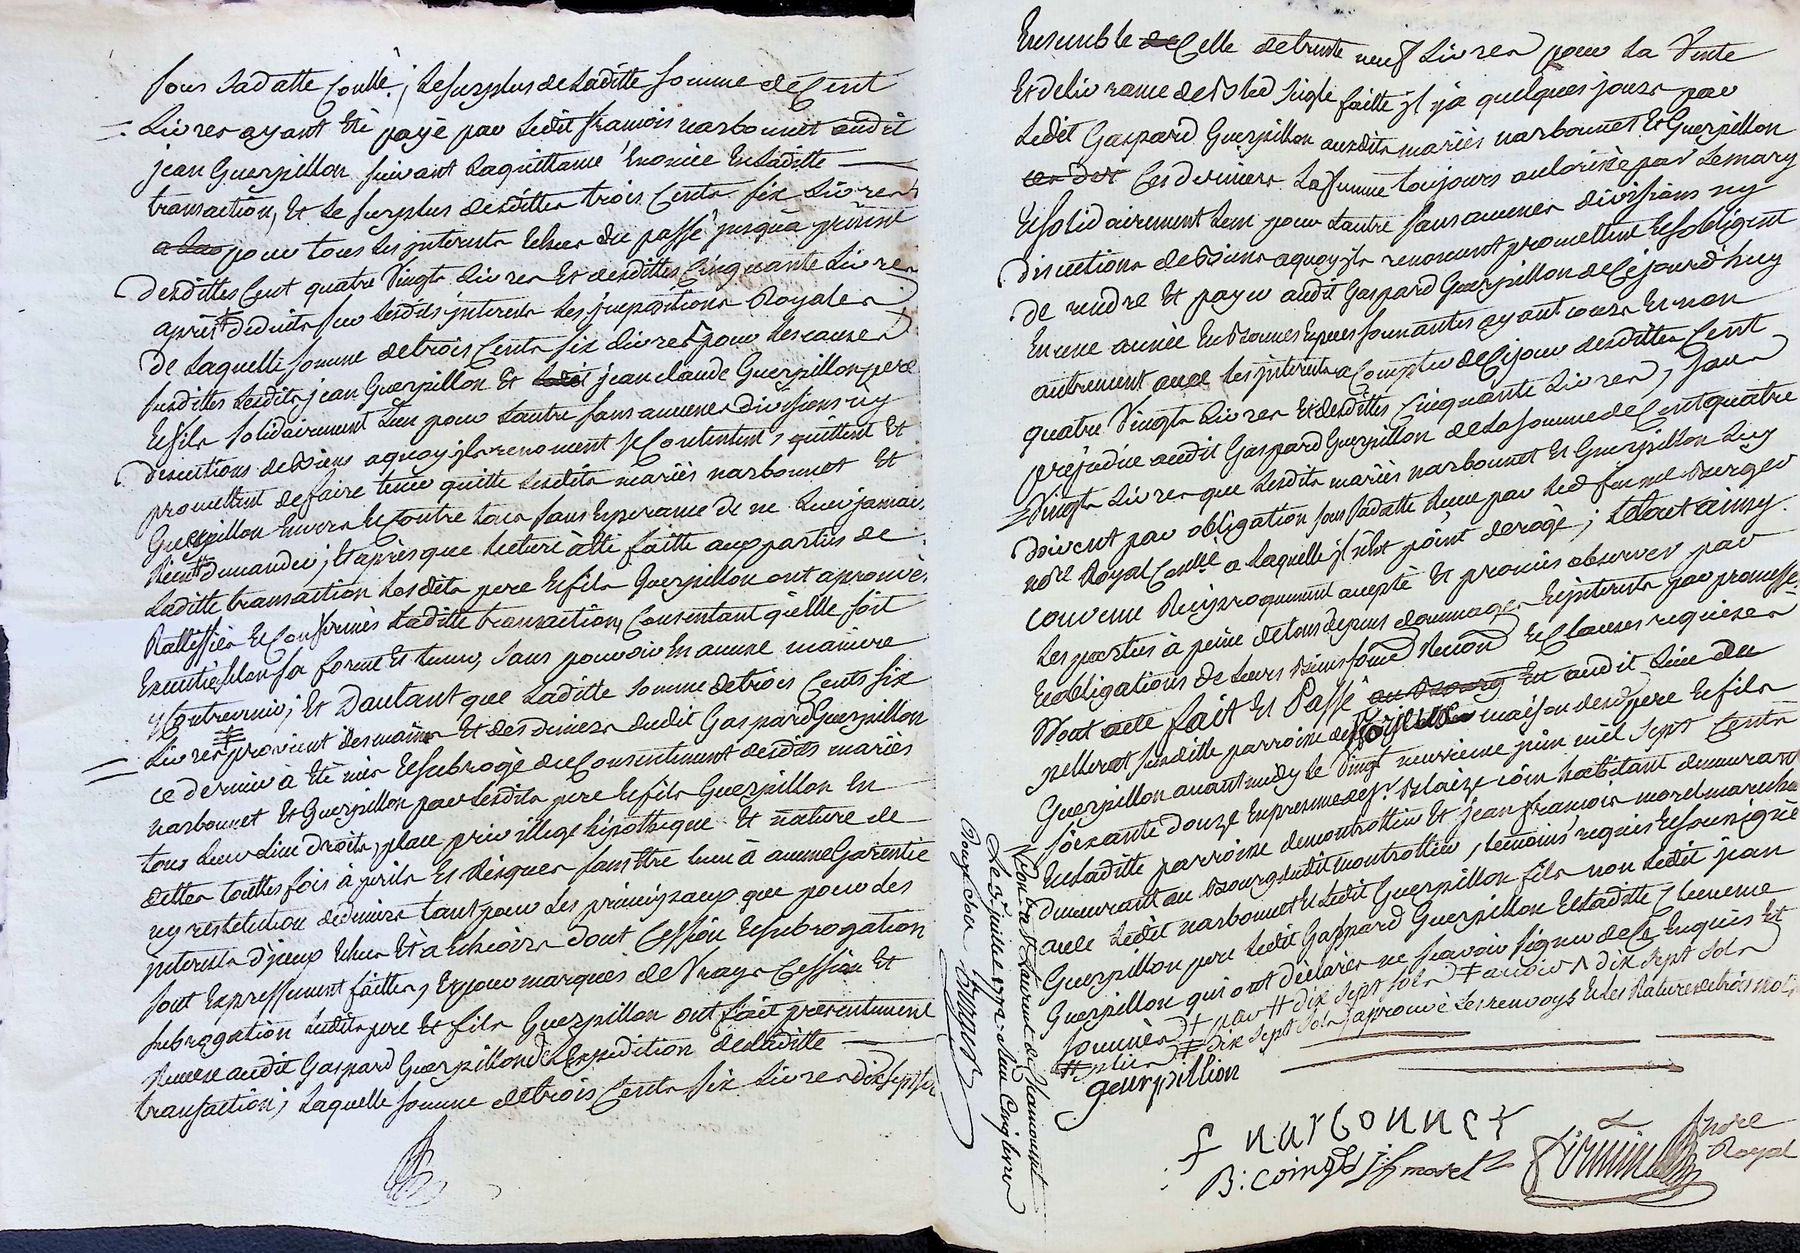 sous sa datte Conllé, le surplus de laditte somme de Cent
Livres ayant été payé par ledit francois narbonnet audit
jean Guerpillon suivant la quittance Enoncée En laditte
transaction, Et le surplus desdittes trois Cents six Livres
pour tous les jnterests Echus du passé jusqu'a present
desdittes Cent quatre Vingts Livres Et desdittes Cinquante Livres
après deduits sur lesdits jnterests les jmpositions Royales
de laquelle somme de trois Cents six Livres pour les causes
susdittes lesdits jean Guerpillon Et jean claude Guerpillon pere
Et fils solidairement l'un pour l'autre sans aucunes divisions ny
discutions de Biens a quoy jls renoncent se Contentent, quittent Et
promettent de faire tenir quitte lesdits mariés narbonnet Et
Guerpillon Envers Et Contre tous sans Esperance de ne leur jamais
Rien demander; Et après que lecture a été faitte aux parties de
laditte transaction lesdits pere Et fils Guerpillon ont aprouvés
Rattiffiés Et Confirmés laditte transaction, Consentant qu'elle soit
Executée selon sa forme Et teneur, sans pouvoir En aucune maniere
y Contrevenir; Et D'autant que laditte somme de trois Cents six
Livres provient des mains Et des deniers dudit Gaspard Guerpillon
ce dernier à été mis Et subrogé du Consentement desdits mariés
narbonnet Et Guerpillon par lesdits pere Et fils Guerpillon En
tous leur lieu droits, place, privillege hipotheque Et nature de
dettes touttes fois à perils Et Risques sans être tenu à aucune Garentie
ny restitution de deniers tant pour les principaux que pour les
jnterests d'jceux Echus Et à Echeoirs dont Cession Et subrogation
sont Expressement faittes, Et pour marques de Vraye Cession Et
subrogation lesdits pere Et fils Guerpillon ont fait presentement
Remise audit Gaspard Guerpillon de l'Expedition de laditte
transaction; laquelle somme de trois Cents six Livres dix sept sols
Ensemble Celle de trente neuf Livres pour la Vente
Et delivrance de Bled seigle faitte jl y a quelques jours par
ledit Gaspard Guerpillon auxdits mariés narbonnet Et Guerpillon
Ces derniers la femme toujours autorisée par le mary
Et solidairement l'un pour l'autre sans aucunes divisions ny
discutions de Biens a quoy jls renoncent promettent Et s'obligent
de rendre Et payer audit Gaspard Guerpillon de Ce jourd'huy
En une année En Bonnes Especes sonnantes ayant cours Et non
autrement avec les jnterests a Compter de Ce jour desdittes Cent
quatre Vingts Livres Et desdittes Cinquante Livres, sans
prejudice audit Gaspard Guerpillon de la somme de Cent quatre
Vingts Livres que lesdits mariés narbonnet Et Guerpillon luy
doivent par obligation sous sa datte Recue par led
Royal a laquelle jl n'est point derogé; le tout ainsy
convenu Reciproquement accepté Et promis observer par
les parties à peine de tous depens dommages Et jnterests par promesse
Et obligations de leurs Biens Et Clauses requises
Dont acte fait Et Passé Et audit lieu du
pelleret susditte parroisse de maison desd pere Et fils
Guerpillon avant midy le Vingt neuvieme juin mil sept Cents
soixante douze En presence de sr Blaize coin habitant demeurant
En laditte parroisse de montrottier Et jean francois morel marechal
demeurant au Bourg dudit montrottier, temoins requis Et soussignés
avec ledit narbonnet Et ledit Guerpillon fils non ledit jean
Guerpillon pere ledit Gaspard Guerpillon Et laditte
Guerpillon qui ont declarés ne scavoir signer de Ce Enquis Et
sommés par dix sept sols dix sept sols
dix sept sols aprouvé les renvoys Et les Ratures de trois mots
guerpillion
f narbonnet
B: coingt j:f morel
Nore
Royal
St Laurent de Chamousset
Le 3 juillet 1772 Cinq livres
Douze sols
Burger